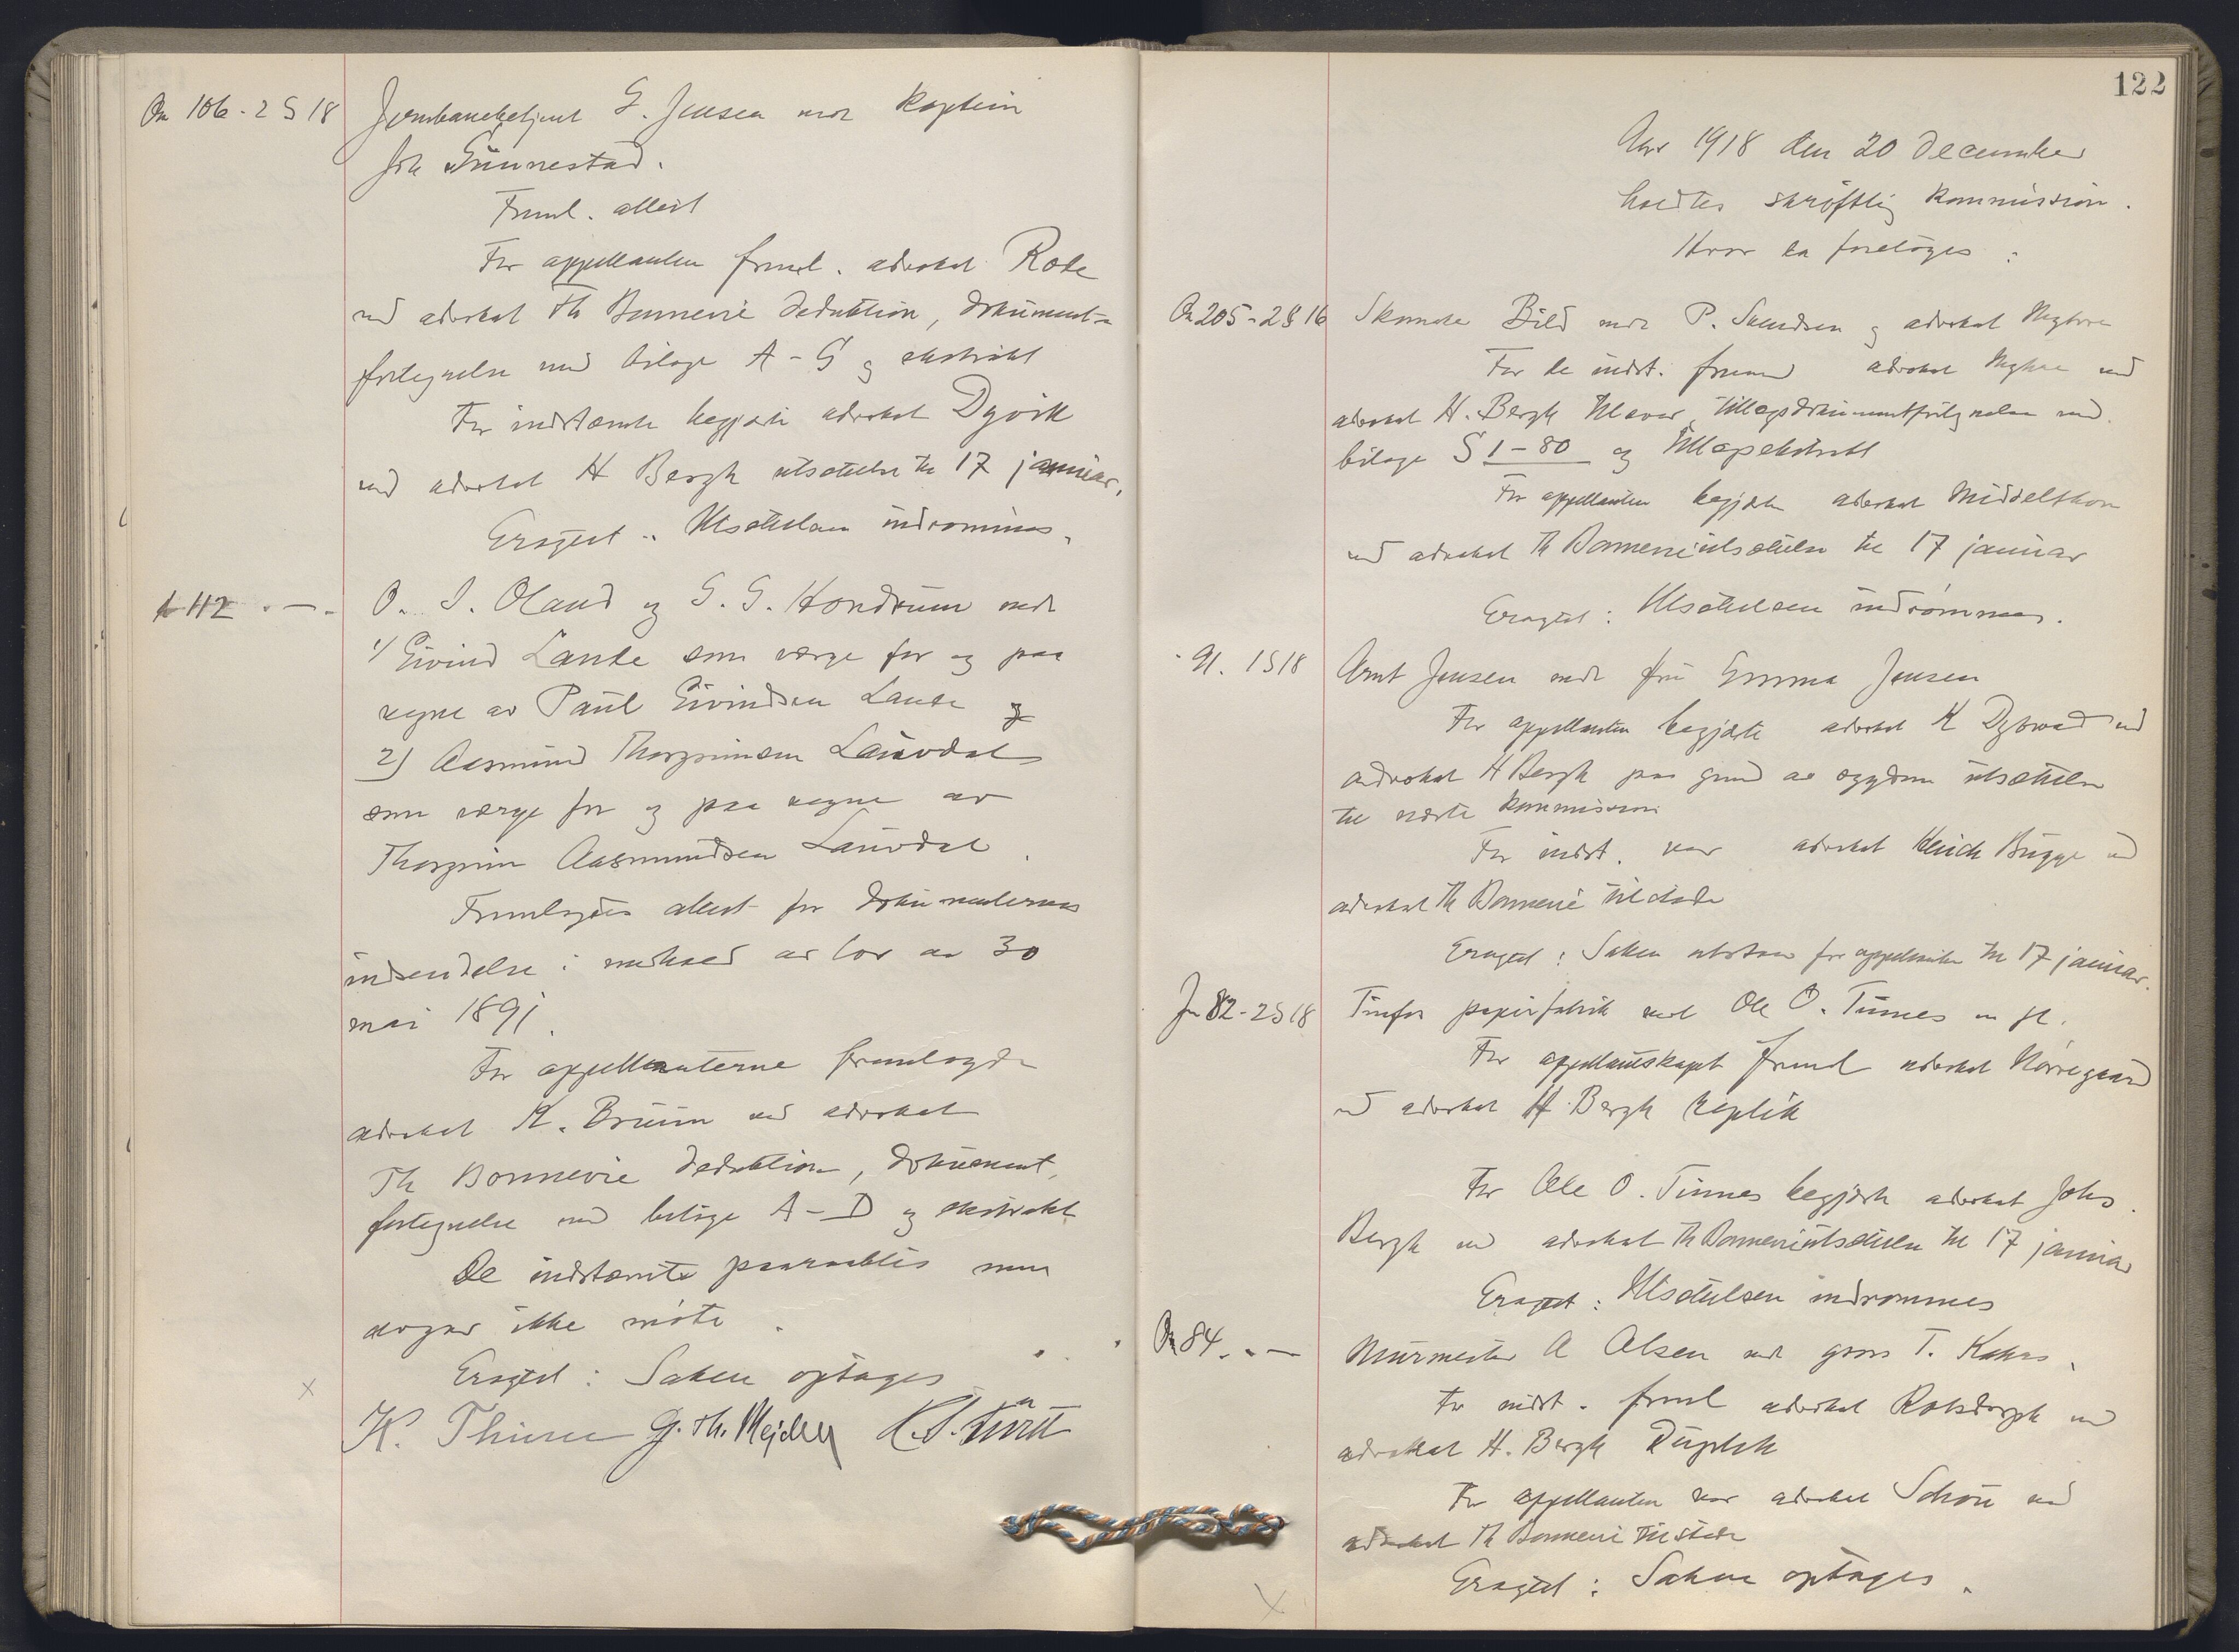 On 106 - 2 S 18 Jernbanebetjent G. Jensen mot kaptein
Joh Gunnestad.
Freml. attest
For appellanten freml. advokat Rode
ved advokat Th Bonnevie deduktion, dokument-
fortegnelse med bilage A - G og ekstrakt
For indstævnte begjærte advokat Dyvik
ved advokat H Bergh utsættelse til 17 januar.
Eragtet: Utsættelsen indrømmes.
112 - " - O. I. Oland og G. G. Hondrum mot
1) Eivind Lande som værge for og paa
vegne av Paul Eivindsen Lande og
2) Aasmund Thorgrimsen Lauvdal
som værge for og paa vegne av
Thorgrim Aasmundsen Lauvdal.
Fremlagdes attest for dokumenternes
indsendelse i medhold av lov av 30
mai 1891.
For appellanterne fremlagde
advokat K. Bruun ved advokat
Th Bonnevie deduktion, dokument-
fortegnelse med bilage A - D og ekstrakt
De indstævnte paaraabtes men
nogen ikke møtte.
Eragtet: Saken optages
K. Thinn G. Th. Mejdell
122
Aar 1918 den 20 december
holdtes skriftlig kommission.
Hvor da foretoges:
On 205 - 2 S 16 Skomaker Bild mot P. Svendsen og advokat Myhre
For de indst. freml advokat Myhre ved
advokat H. Bergh tilsvar, tillægsdokumentfortegnelse med
bilage S 1 - 80 og tillægsekstrakt
For appellanten begjærte advokat Middelthon
ved advokat Th Bonnevie utsættelse til 17 januar
Eragtet: Utsættelsen indrømmes.
" 91. 1 S 18 Arnt Jensen mot fru Emma Jensen
For appellanten begjærte advokat K Dybwad ved
advokat H Bergh paa grund av sygdom utsættelse
til næste kommission
For indst. var advokat Bugge ved
advokat Th Bonnevie tilstede
Eragtet: Saken utstaar for appellanten til 17 januar.
Jn 82 - 2 S 18 Tinfos papirfabrik mot Ole O. Tinnes m fl.
For appellantskapet freml advokat Nørregaard
ved advokat H. Bergh replik
For Ole O. Tinnes begjærte advokat Johs.
Bergh ved advokat Th Bonnevie utsættelse til 17 januar
Eragtet: Utsættelsen indrømmes
On 84. " - Murmester A Olsen mot gros T. Kahrs.
For indst. freml advokat Rolsdorph ved
advokat H. Bergh Duplik
For appellanten var advokat Schøn ved
advokat Th Bonnevie tilstede
Eragtet: Saken optages.